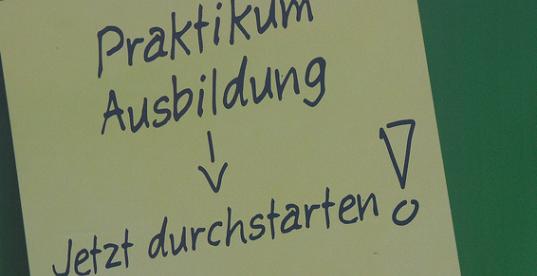 Praktikum
Ausbildung
Jetzt durchstarten!